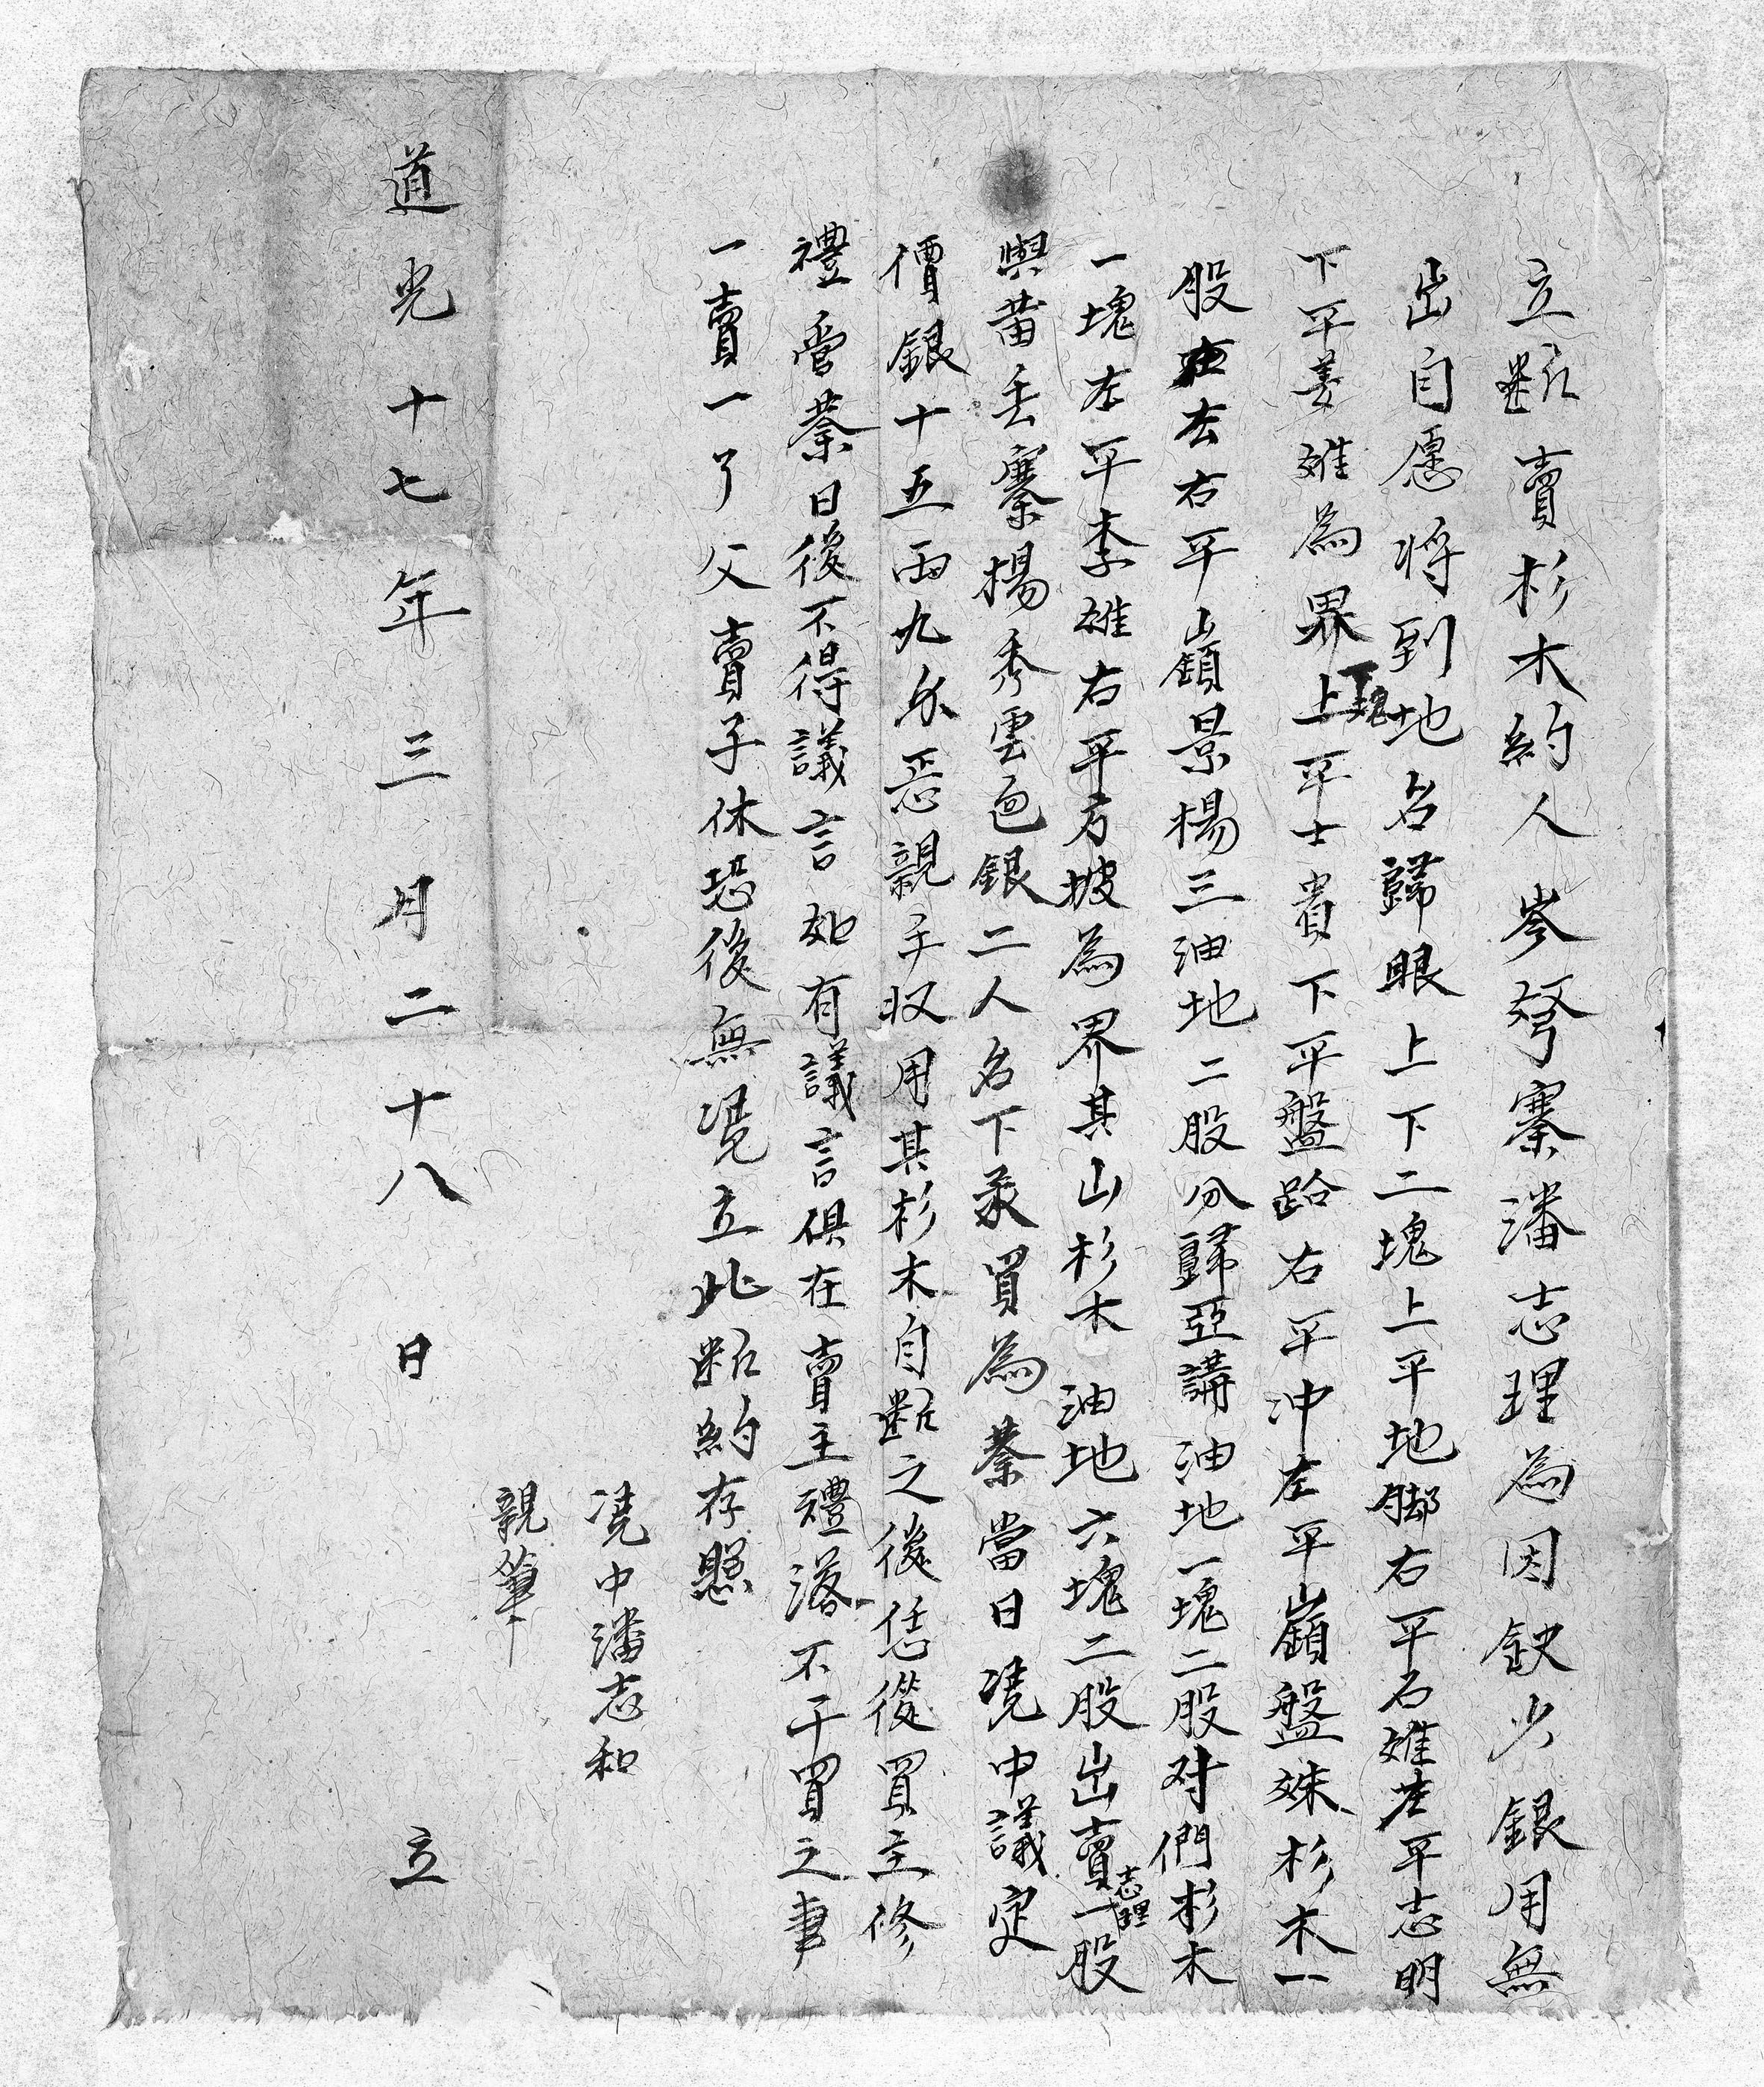 立斷賣杉木約人岑孖寨潘志理為因缺少銀用無
出自愿将到地名歸眼上下二塊上平地脚右平石雄左平志明
下平姜雄為界上下塊平士貴下平盤路右平冲左平嶺盤姝杉木一
股在左右平嶺景楊三油地二股分歸亞講油地一塊二股对們杉木
一塊左平李雄右平方坡為界其山杉木油地六塊二股出賣志理一股
與苗丟寨楊秀雲包銀二人名下承買為業當日凴中議定
價銀十五両九分恁親手収用其杉木自斷之後恁從買主修
禮管業日後不得議言如有議言俱在賣主禮落不干買之事
一賣一了父賣子休恐後無凴立此断約存照
凴中潘志和
親筆
道光十七年三月二十八日立